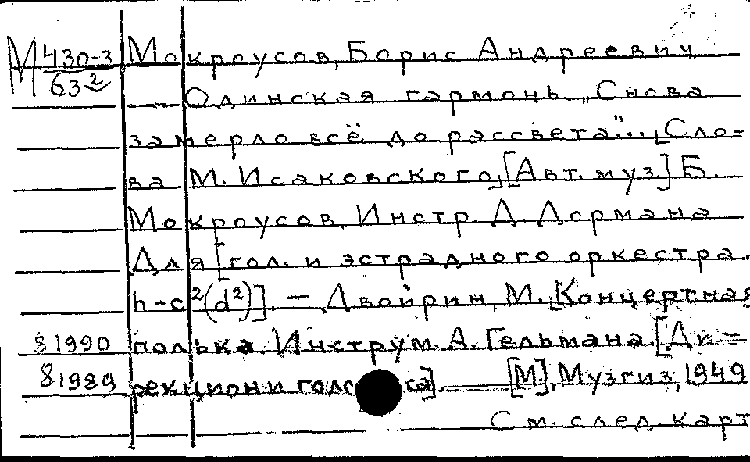 М 430-3
63²
Мокроусов, Борис Андреевич
Одинская гармонь. „Снова
замерло всё до рассвета"... [Сло-
ва М. Исаковского, [Авт. муз] Б.
Мокроусов, Инстр. Д. Лермана
Для [гол. и эстрадного оркестра.
h-c²(d²)]. — Двойрин, М. [Концертная
81990 полька. Инструм. А. Гельмана. [Ди-
81989 рекцион и голоса]. — [М], Музгиз, 1949
См. след. карт